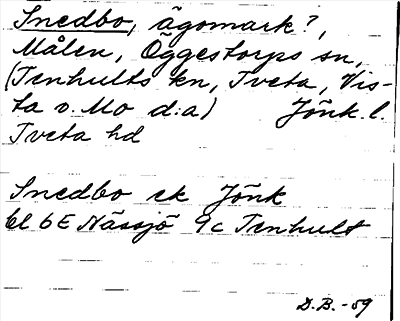 Snedbo, ägomark?,
Målen, Öggestorps sn,
(Tenhults kn, Tveta, Vis-
ta o. Mo d:a) Jönk. l.
Tveta hd
Snedbo ek Jönk
bl 6E Nässjö 9c Tenhult
D.B.-59